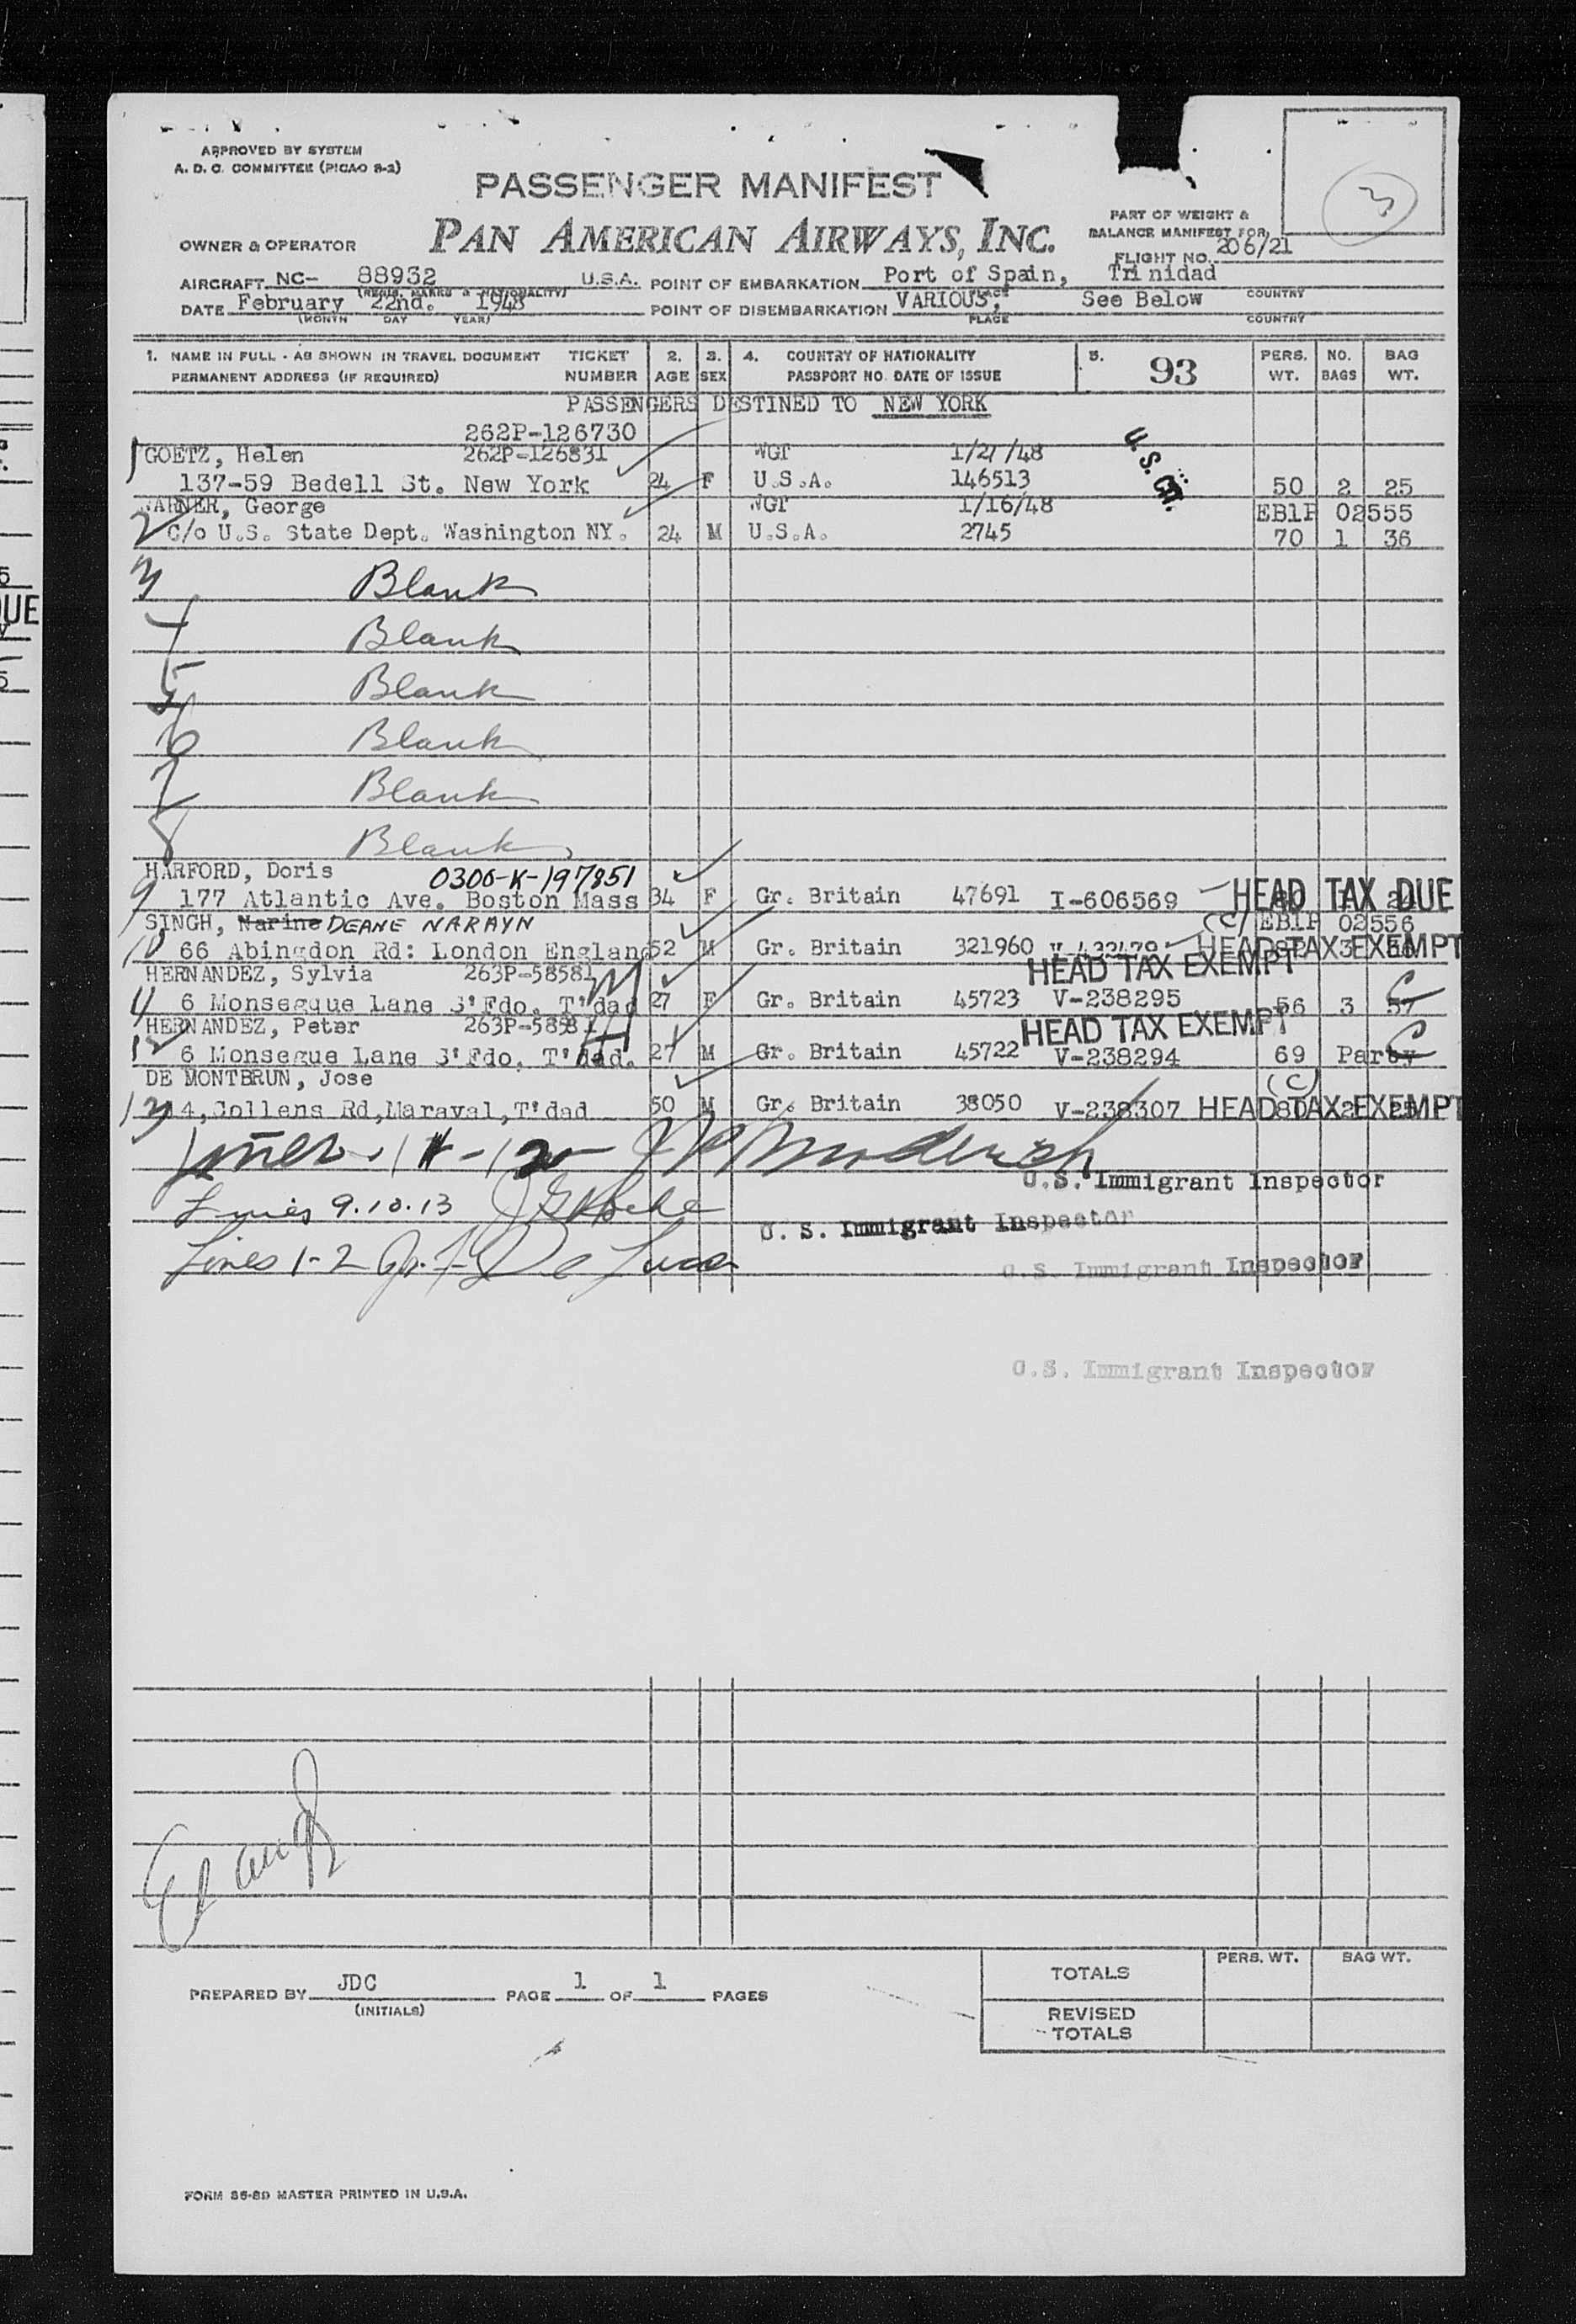 APPROVED BY SYSTEM
A. D. C. COMMITTEE (PICAO 8-2)
PASSENGER MANIFEST
3
PART OF WEIGHT &
BALANCE MANIFEST FOR
OWNER & OPERATOR
PAN AMERICAN AIRWAYS, INC.
FLIGHT NO. 206/21
AIRCRAFT NC- 88932 U.S.A. POINT OF EMBARKATION Port of Spain, Trinidad
(REGIS. MARKS & NATIONALITY) PLACE COUNTRY
DATE February 22nd. 1948 POINT OF DISEMBARKATION VARIOUS, See Below
(MONTH DAY YEAR) PLACE COUNTRY
1. NAME IN FULL - AS SHOWN IN TRAVEL DOCUMENT TICKET 2. 3. 4. COUNTRY OF NATIONALITY 5. 93 PERS. NO. BAG
PERMANENT ADDRESS (IF REQUIRED) NUMBER AGE SEX PASSPORT NO. DATE OF ISSUE WT. BAGS WT.
PASSENGERS DESTINED TO NEW YORK
262P-126730
1 GOETZ, Helen 262P-126831 WGT 1/2/ /48 U.S. CIT.
137-59 Bedell St. New York 24 F U.S.A. 146513 50 2 25
WARNER, George WGT 1/16/48 EB1P 02555
2 C/o U.S. State Dept. Washington NY. 24 M U.S.A. 2745 70 1 36
3 Blank
4 Blank
5 Blank
6 Blank
7 Blank
8 Blank
HARFORD, Doris 0306-K-197851
9 177 Atlantic Ave. Boston Mass 34 F Gr. Britain 47691 I-606569 HEAD TAX DUE
SINGH, Narine DEANE NARAYN (C) EB1P 02556
10 66 Abingdon Rd: London England 52 M Gr. Britain 321960 V-432479 HEAD TAX EXEMPT
HERNANDEZ, Sylvia 263P-58581 HEAD TAX EXEMPT
11 6 Monsegque Lane S'Fdo. T'dad 27 F Gr. Britain 45723 V-238295 56 3 57 C
HERNANDEZ, Peter 263P-5858 HEAD TAX EXEMPT
12 6 Monsegue Lane S'Fdo. T'dad. 27 M Gr. Britain 45722 V-238294 69 Party C
DE MONTBRUN, Jose (C)
13 4, Collens Rd, Maraval, T'dad 50 M Gr. Britain 38050 V-238307 80 2 HEAD TAX EXEMPT
Lines 11-12
U.S. Immigrant Inspector
Lines 9.10.13
U. S. Immigrant Inspector
Lines 1-2 De Luca
U.S. Immigrant Inspector
U.S. Immigrant Inspector
TOTALS PERS. WT. BAG WT.
PREPARED BY JDC PAGE 1 OF 1 PAGES
(INITIALS)
REVISED
TOTALS
FORM 86-89 MASTER PRINTED IN U.S.A.